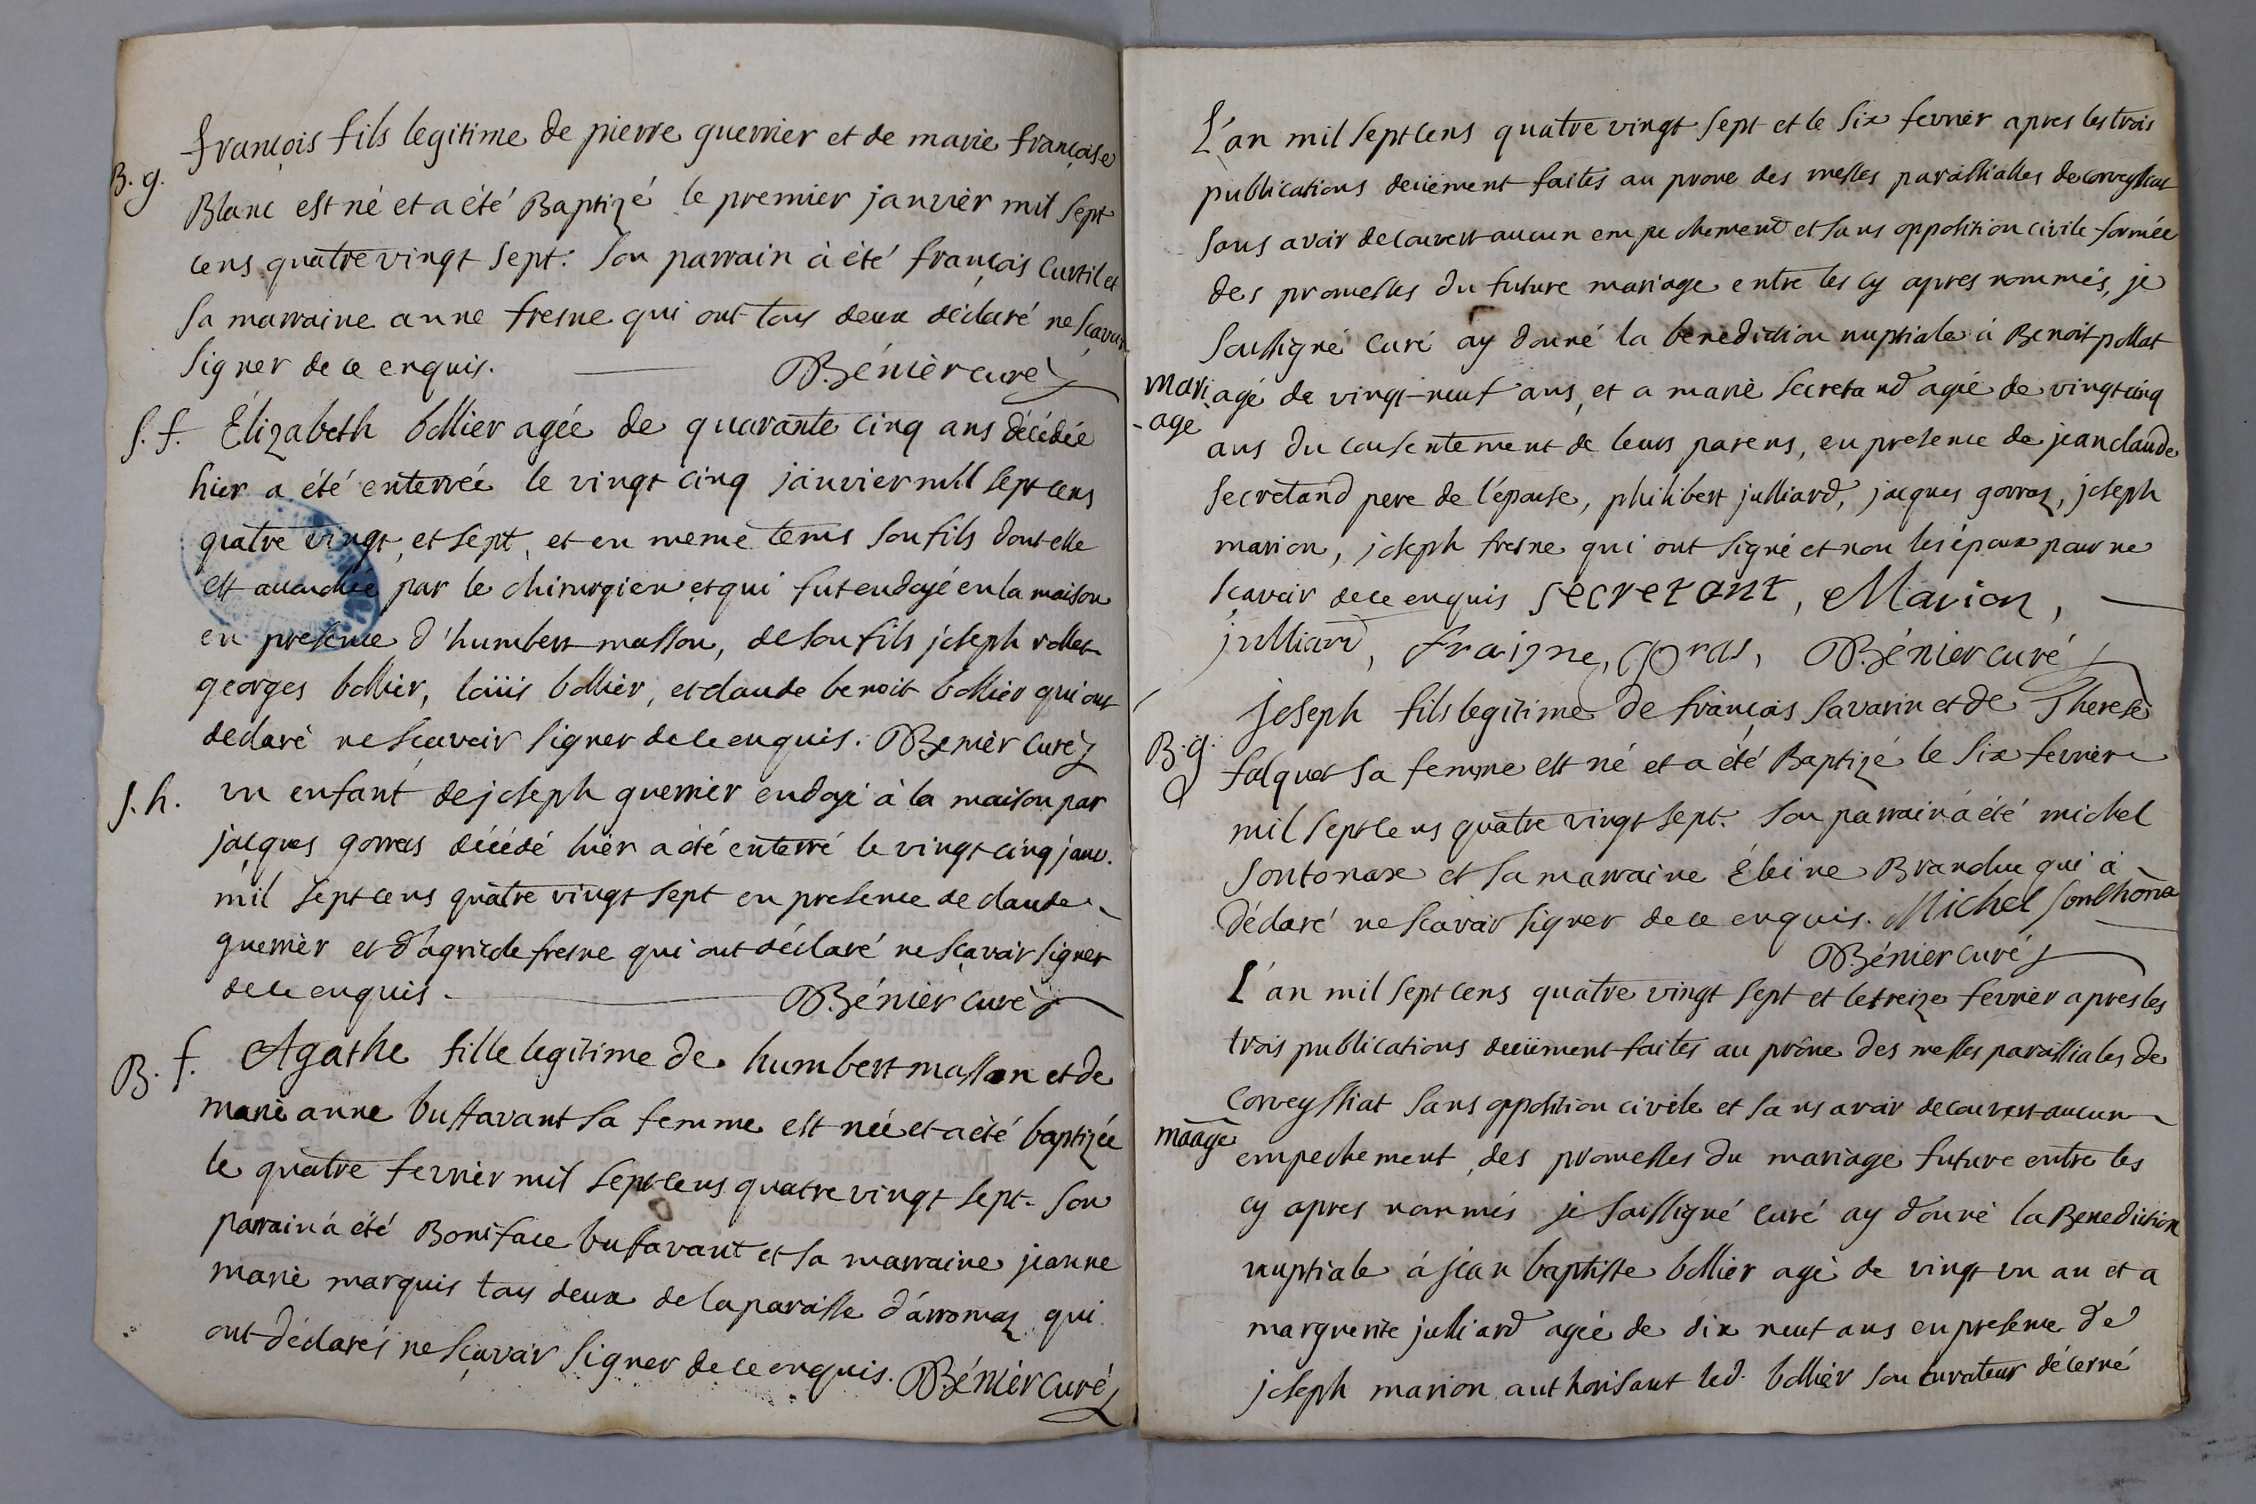 françois fils legitime de pierre guerrier et de marie françoise
B. g.
Blanc est né et a été Baptizé le premier janvier mil sept
cens quatre vingt sept. son parrain à été françois Curtil et
sa marraine anne fresne qui ont tous deux déclaré ne sçavoir
signer de ce enquis. Bénier curé
s. f. Élizabeth bollier agée de quarante cinq ans décédée
hier a été enterrée le vingt cinq janvier mil sept cens
quatre vingt et sept, et en meme tems son fils dont elle
est accouchée par le chirurgien et qui fut endoyé en la maison
en presence d'humbert masson, de son fils joseph rollet
georges bollier, loüis bollier, et claude benoit bollier qui ont
declaré ne sçavoir signer de ce enquis. Benier curé
s. h. un enfant de joseph guerrier endoyé à la maison par
jacques gorras décédé hier a été enterré le vingt cinq janv.
mil sept cens quatre vingt sept en presence de claude
guerrier et d'agricole fresne qui ont déclaré ne sçavoir signer
de ce enquis. Bénier curé
B. f. Agathe fille legitime de humbert masson et de
marie anne buffavant sa femme est née et a été baptizée
le quatre fevrier mil sept cens quatre vingt sept. son
parrain à été Boniface buffavant et sa marraine jeanne
marie marquis tous deux de la paroisse d'arromas qui
ont déclarés ne sçavoir signer de ce enquis. Bénier curé
L'an mil sept cens quatre vingt sept et le six fevrier apres les trois
publications deüement faites au prone des messes paroissialles de corveyssiat
sans avoir decouvert aucun empechement et sans opposition civile formée
des promesses du future mariage entre les cy apres nommés, je
soussigné curé ay donné la benediction nuptiale à Benoit pollat
mari agé de vingt-neuf ans, et a marie secretand agée de vingt cinq
-age
ans du consentement de leurs parens, en presence de jean claude
secretand pere de l'épouse, philibert julliard, jacques gorraz, joseph
marion, joseph fresne qui ont signé et non les époux pour ne
sçavoir de ce enquis secretant, Marion,
julliard, fraigne, goras, Bénier curé
joseph fils legitime de françois savarin et de Therese
B. g.
falquet sa femme est né et a été Baptizé le six fevrier
mil sept cens quatre vingt sept. son parrain á été michel
sontonax et sa marraine
déclaré ne scavoir signer de ce enquis. Michel sonthona
Bénier curé
L'an mil sept cens quatre vingt sept et le treize fevrier apres les
trois publications deüement faites au prône des messes paroissiales de
Corveyssiat sans opposition civile et sans avoir decouvert aucun
maage
empechement, des promesses du mariage future entre les
cy apres nommés je soussigné curé ay donné la Benediction
nuptiale á jean baptiste bollier agé de vingt un an et a
marguerite julliard agée de dix neuf ans en presence de
joseph marion authorisant led. bollier son curateur décerné